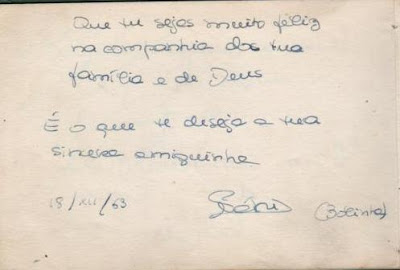 Que tu sejas muito féliz
na companhia da tua
família e de Deus
É o que te deseja a tua
sincera amiguinha
18/XII/63
(Bólinha)